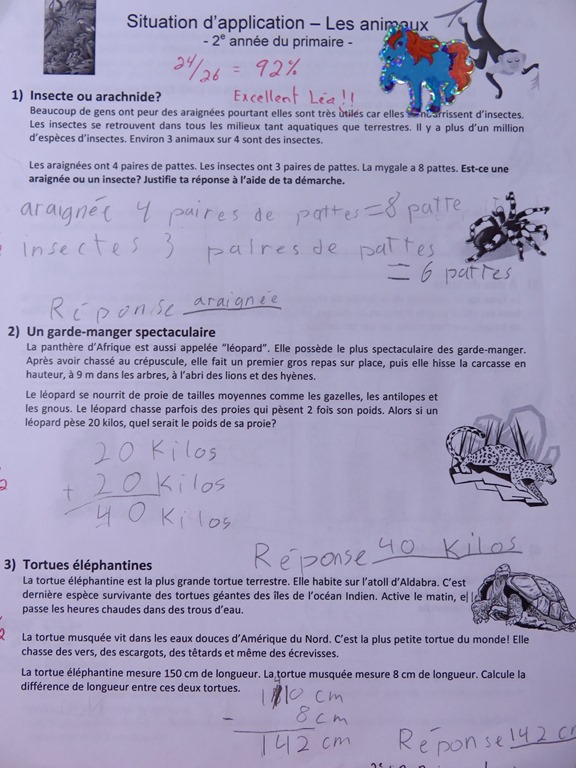 Situation d'application – Les animaux
- 2e année du primaire -
24/26 = 92%
Excellent Léa!!
1) Insecte ou arachnide?
Beaucoup de gens ont peur des araignées pourtant elles sont très utiles car elles se nourrissent d'insectes.
Les insectes se retrouvent dans tous les milieux tant aquatiques que terrestres. Il y a plus d'un million
d'espèces d'insectes. Environ 3 animaux sur 4 sont des insectes.
Les araignées ont 4 paires de pattes. Les insectes ont 3 paires de pattes. La mygale a 8 pattes. Est-ce une
araignée ou un insecte? Justifie ta réponse à l'aide de ta démarche.
araignée 4 paires de pattes = 8 patte
insectes 3 paires de pattes
= 6 pattes
Réponse araignée
2) Un garde-manger spectaculaire
La panthère d'Afrique est aussi appelée "léopard". Elle possède le plus spectaculaire des garde-manger.
Après avoir chassé au crépuscule, elle fait un premier gros repas sur place, puis elle hisse la carcasse en
hauteur, à 9 m dans les arbres, à l'abri des lions et des hyènes.
Le léopard se nourrit de proie de tailles moyennes comme les gazelles, les antilopes et
les gnous. Le léopard chasse parfois des proies qui pèsent 2 fois son poids. Alors si un
léopard pèse 20 kilos, quel serait le poids de sa proie?
20 Kilos
+ 20 Kilos
40 Kilos
Réponse 40 Kilos
3) Tortues éléphantines
La tortue éléphantine est la plus grande tortue terrestre. Elle habite sur l'atoll d'Aldabra. C'est
dernière espèce survivante des tortues géantes des îles de l'océan Indien. Active le matin, el
passe les heures chaudes dans des trous d'eau.
La tortue musquée vit dans les eaux douces d'Amérique du Nord. C'est la plus petite tortue du monde! Elle
chasse des vers, des escargots, des têtards et même des écrevisses.
La tortue éléphantine mesure 150 cm de longueur. La tortue musquée mesure 8 cm de longueur. Calcule la
différence de longueur entre ces deux tortues.
cm
- 8 cm
142 cm
Réponse 142 cm